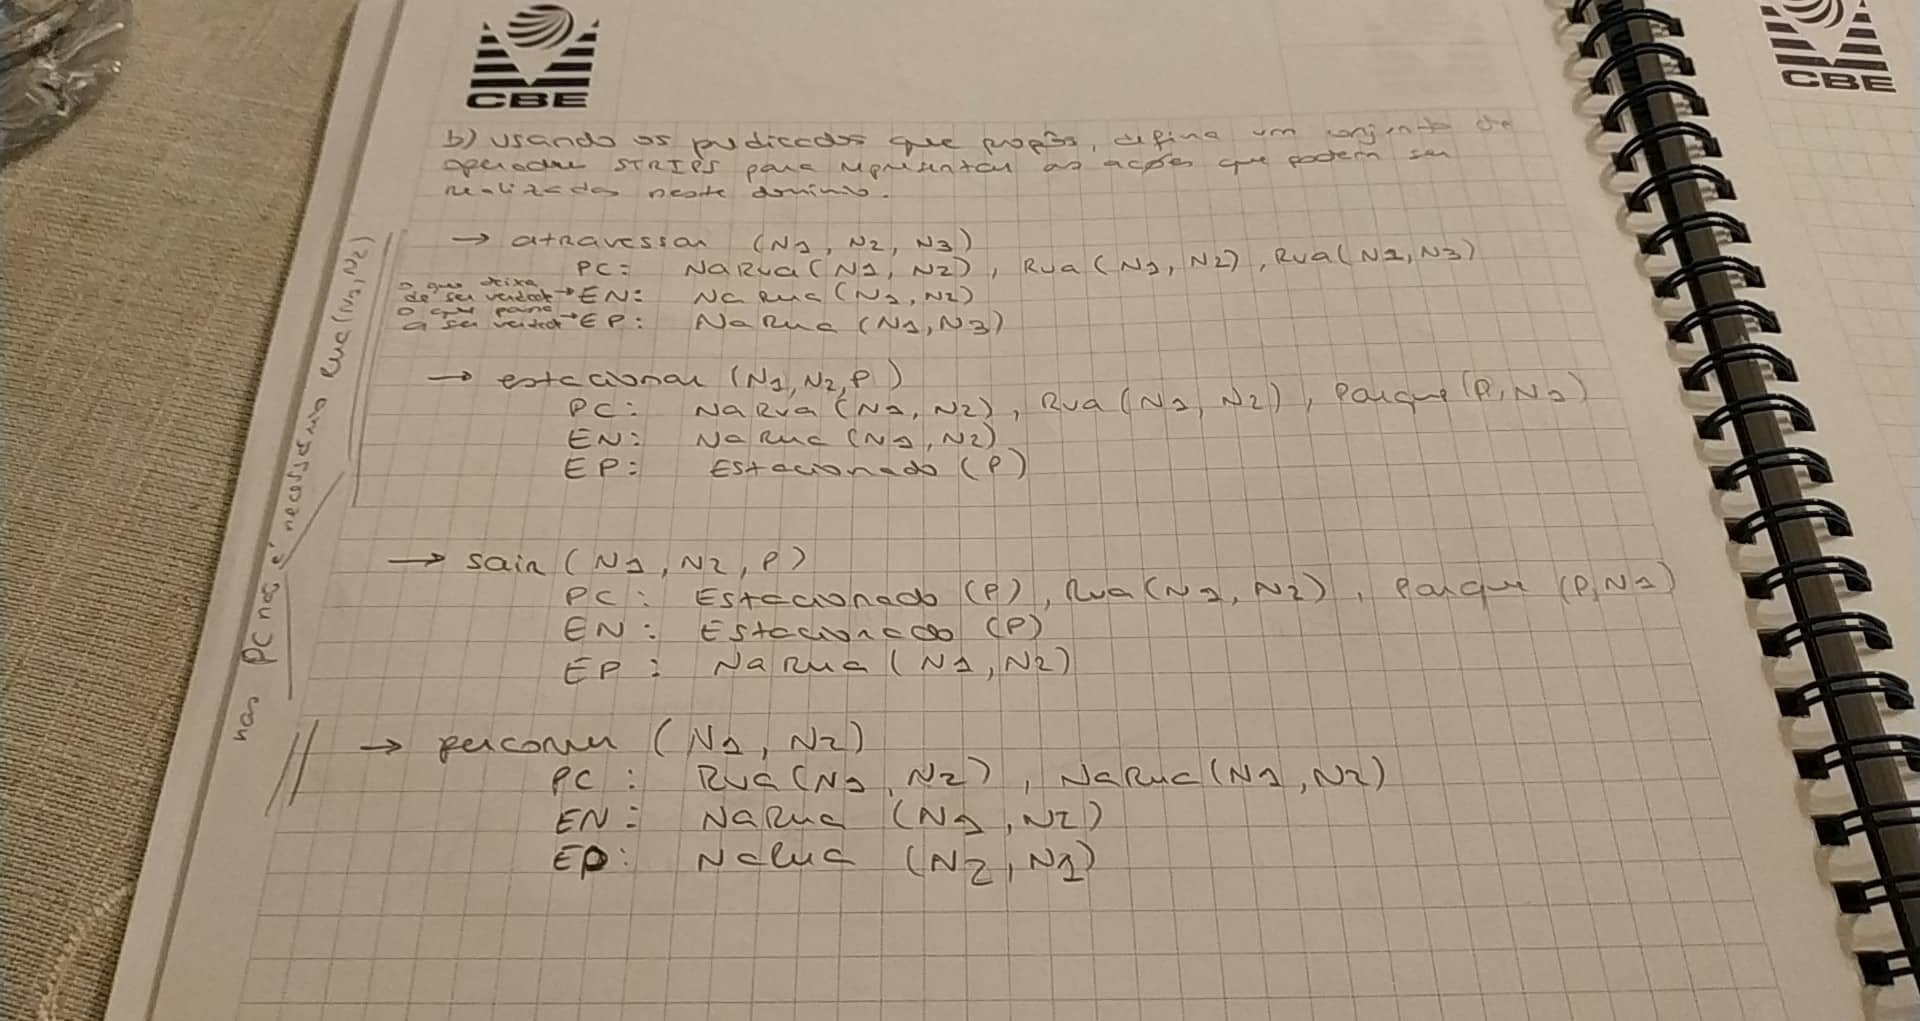 CBE
CBE
b) usando os predicados que propôs, defina um conjunto de
operadores STRIPS para representar as ações que podem ser
realizadas neste domínio.
→ atravessar (N1, N2, N3)
PC: NaRua(N1, N2), Rua(N1, N2), Rua(N1, N3)
o que deixa
de ser verdade → EN: NaRua(N1, N2)
o que passa
a ser verdade → EP: NaRua(N1, N3)
→ estacionar (N1, N2, P)
PC: NaRua(N1, N2), Rua(N1, N2), Parque(P, N1)
EN: NaRua(N1, N2)
EP: Estacionado(P)
→ sair (N1, N2, P)
PC: Estacionado(P), Rua(N1, N2), Parque(P, N1)
EN: Estacionado(P)
EP: NaRua(N1, N2)
→ percorrer (N1, N2)
PC: Rua(N1, N2), NaRua(N1, N2)
EN: NaRua(N1, N2)
EP: NaRua(N2, N1)
nas PC não é necessário Rua(N1, N2)